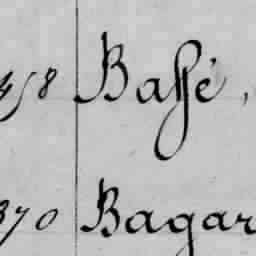 458 Bassé,
370 Bagar